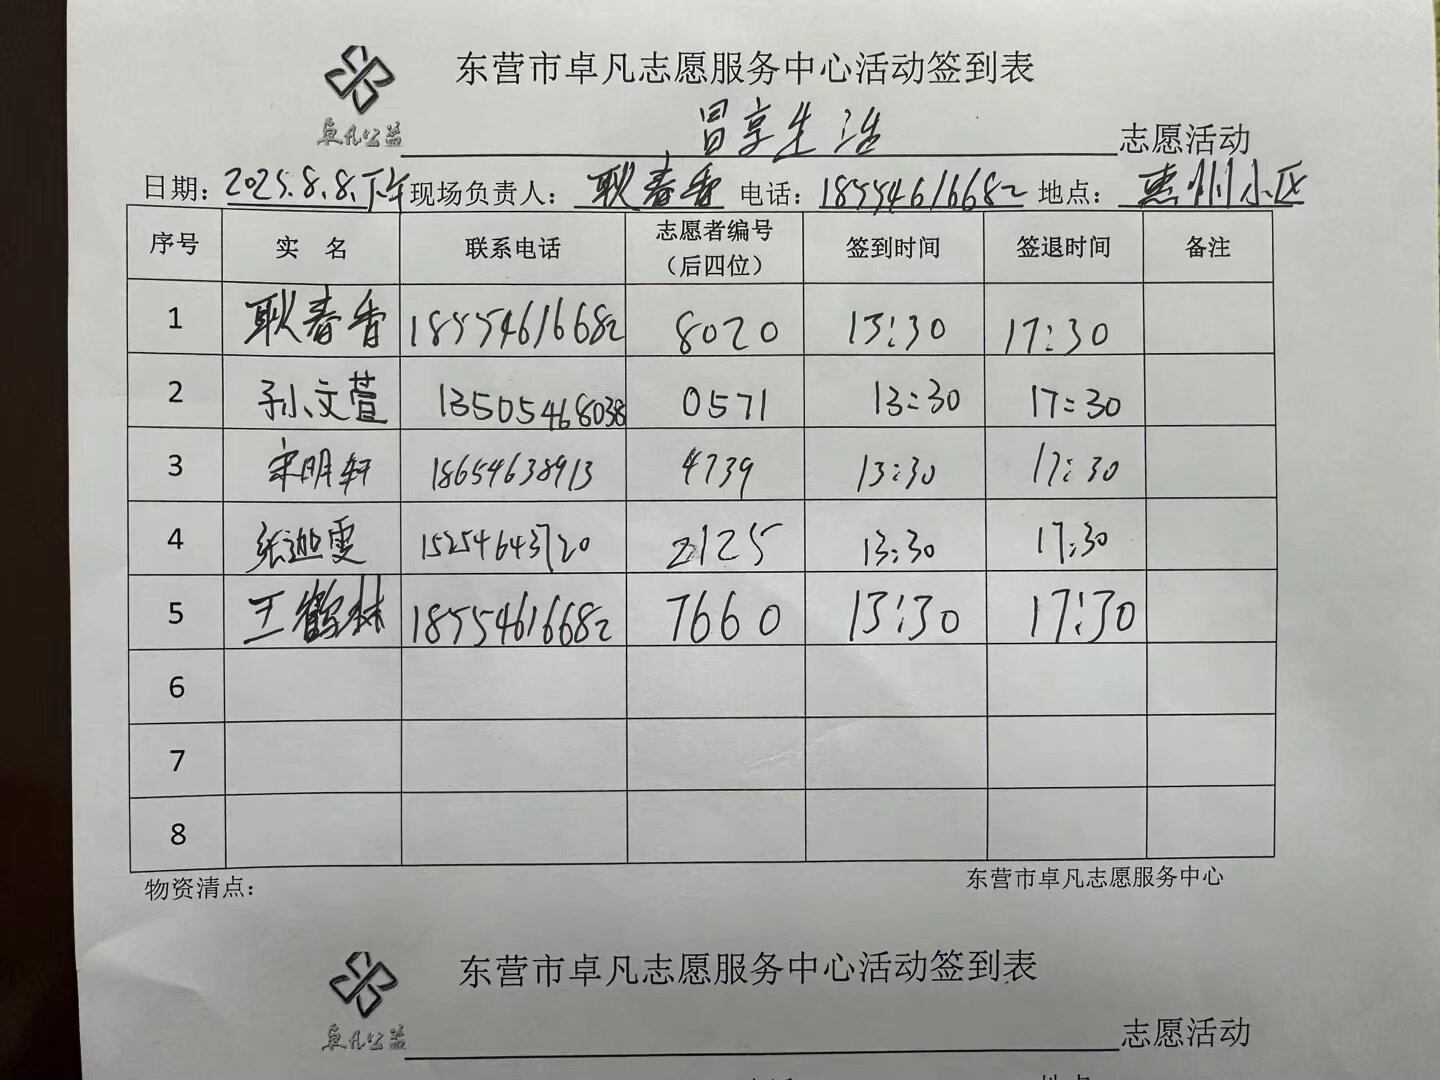 东营市卓凡志愿服务中心活动签到表
卓凡公益
冒享生活 志愿活动
日期：2025.8.8.下午 现场负责人：耿春香 电话：18554616682 地点：惠州小区
序号 实 名 联系电话 志愿者编号（后四位） 签到时间 签退时间 备注
1 耿春香 18554616682 8020 13:30 17:30
2 孙文萱 13505468038 0571 13:30 17:30
3 宋明轩 18654638913 4739 13:30 17:30
4 张迦雯 15254643720 2125 13:30 17:30
5 王鹤林 18554616682 7660 13:30 17:30
6
7
8
物资清点： 东营市卓凡志愿服务中心
东营市卓凡志愿服务中心活动签到表
卓凡公益
志愿活动